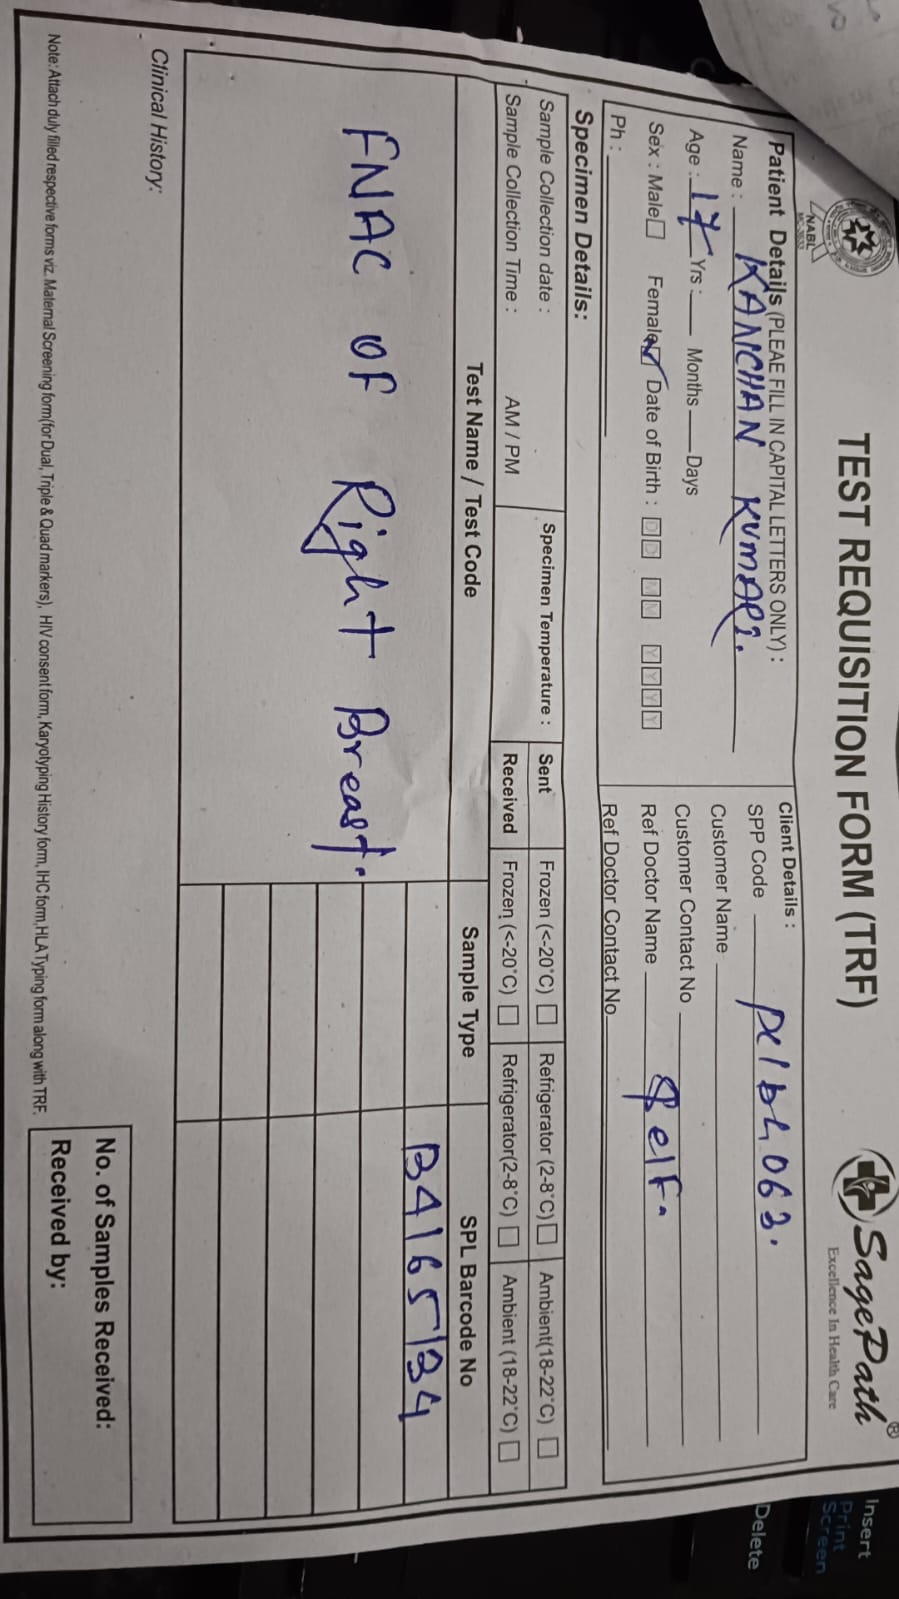 NABL
TEST REQUISITION FORM (TRF)
SagePath®
Excellence In Health Care
Patient Details (PLEAE FILL IN CAPITAL LETTERS ONLY) :
Name : KANCHAN KUMARI.
Age : 17 Yrs : Months Days
Sex : Male Female ✓ Date of Birth : DD MM YYYY
Ph :
Client Details :
SPP Code
Customer Name
Customer Contact No
Ref Doctor Name Self.
Ref Doctor Contact No
Specimen Details:
Sample Collection date :
Sample Collection Time : AM / PM
Specimen Temperature :
Sent Frozen (<-20°C) Refrigerator (2-8°C) Ambient(18-22°C)
Received Frozen (<-20°C) Refrigerator(2-8°C) Ambient (18-22°C)
Test Name / Test Code Sample Type SPL Barcode No
B4165134
FNAC OF Right Breast.
Clinical History:
No. of Samples Received:
Received by:
Note: Attach duly filled respective forms viz. Maternal Screening form(for Dual, Triple & Quad markers), HIV consent form, Karyotyping History form, IHC form, HLA Typing form along with TRF.
Insert
Print
Screen
Delete